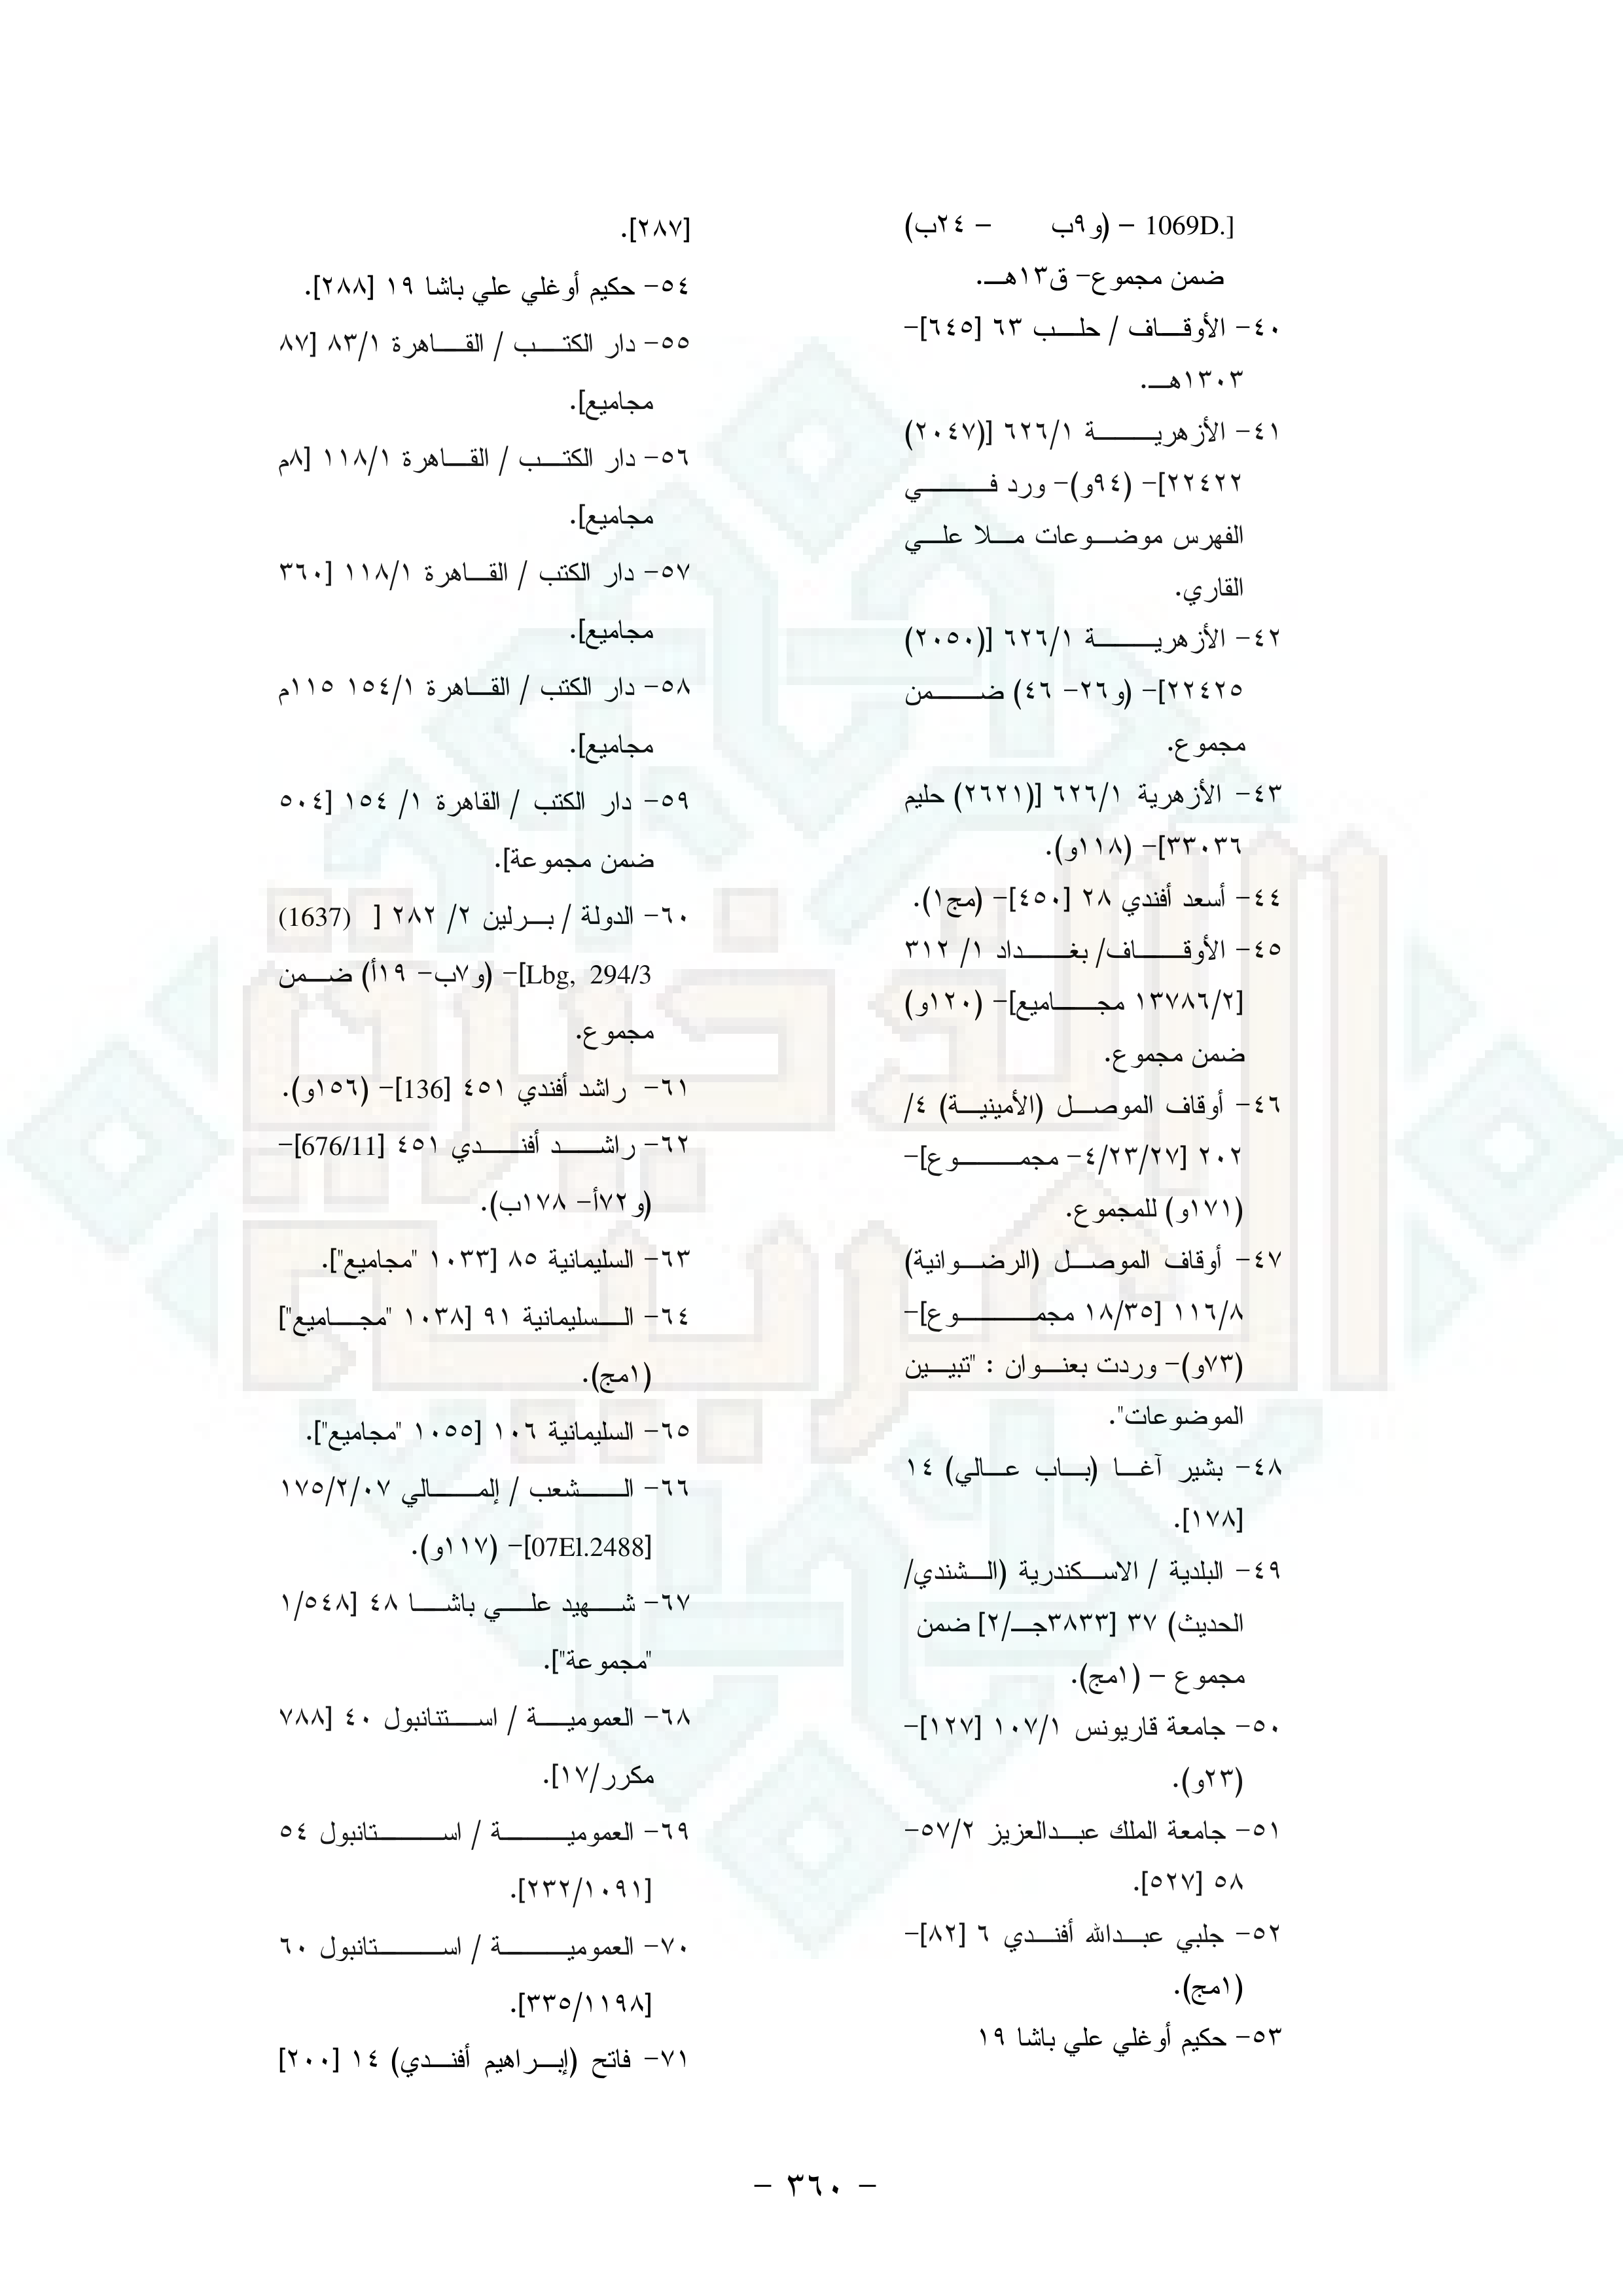 [.1069D – (و٩ب – ٢٤ب)
ضمن مجموع- ق١٣هـ.
٤٠- الأوقاف / حلب ٦٣ [٦٤٥]-
١٣٠٣هـ.
٤١- الأزهرية ٦٢٦/١ [(٢٠٤٧)
٢٢٤٢٢]- (٩٤و)- ورد في
الفهرس موضوعات ملا علي
القاري.
٤٢- الأزهرية ٦٢٦/١ [(٢٠٥٠)
٢٢٤٢٥]- (و٢٦- ٤٦) ضمن
مجموع.
٤٣- الأزهرية ٦٢٦/١ [(٢٦٢١) حليم
٣٣٠٣٦]- (١١٨و).
٤٤- أسعد أفندي ٢٨ [٤٥٠]- (مج١).
٤٥- الأوقاف/ بغداد ١/ ٣١٢
[١٣٧٨٦/٢ مجاميع]- (١٢٠و)
ضمن مجموع.
٤٦- أوقاف الموصل (الأمينية) ٤/
٢٠٢ [٤/٢٣/٢٧- مجموع]-
(١٧١و) للمجموع.
٤٧- أوقاف الموصل (الرضوانية)
١١٦/٨ [١٨/٣٥ مجموع]-
(٧٣و)- وردت بعنوان : "تبيين
الموضوعات".
٤٨- بشير آغا (باب عالي) ١٤
[١٧٨].
٤٩- البلدية / الاسكندرية (الشندي/
الحديث) ٣٧ [٣٨٣٣جـ/٢] ضمن
مجموع – (١مج).
٥٠- جامعة قاريونس ١٠٧/١ [١٢٧]-
(٢٣و).
٥١- جامعة الملك عبدالعزيز ٥٧/٢-
٥٨ [٥٢٧].
٥٢- جلبي عبدالله أفندي ٦ [٨٢]-
(١مج).
٥٣- حكيم أوغلي علي باشا ١٩
[٢٨٧].
٥٤- حكيم أوغلي علي باشا ١٩ [٢٨٨].
٥٥- دار الكتب / القاهرة ٨٣/١ [٨٧
مجاميع].
٥٦- دار الكتب / القاهرة ١١٨/١ [٨م
مجاميع].
٥٧- دار الكتب / القاهرة ١١٨/١ [٣٦٠
مجاميع].
٥٨- دار الكتب / القاهرة ١٥٤/١ ١١٥م
مجاميع].
٥٩- دار الكتب / القاهرة ١/ ١٥٤ [٥٠٤
ضمن مجموعة].
٦٠- الدولة / برلين ٢/ ٢٨٢ [ (1637)
Lbg, 294/3]- (و٧ب- ١٩أ) ضمن
مجموع.
٦١- راشد أفندي ٤٥١ [136]- (١٥٦و).
٦٢- راشد أفندي ٤٥١ [676/11]-
(و٧٢أ- ١٧٨ب).
٦٣- السليمانية ٨٥ [١٠٣٣ "مجاميع"].
٦٤- السليمانية ٩١ [١٠٣٨ "مجاميع"]
(١مج).
٦٥- السليمانية ١٠٦ [١٠٥٥ "مجاميع"].
٦٦- الشعب / إلمالي ١٧٥/٢/٠٧
[07El.2488]- (١١٧و).
٦٧- شهيد علي باشا ٤٨ [١/٥٤٨
"مجموعة"].
٦٨- العمومية / استتانبول ٤٠ [٧٨٨
مكرر/١٧].
٦٩- العمومية / استانبول ٥٤
[٢٣٢/١٠٩١].
٧٠- العمومية / استانبول ٦٠
[٣٣٥/١١٩٨].
٧١- فاتح (إبراهيم أفندي) ١٤ [٢٠٠]
– ٣٦٠ –